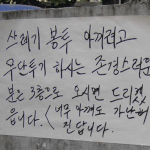 쓰레기 봉투 아끼려고
무단투기 하시는 존경스러운
분은 3층으로 오시면 드리겠
습니다. (너무 아껴도 가난해
진답니다.